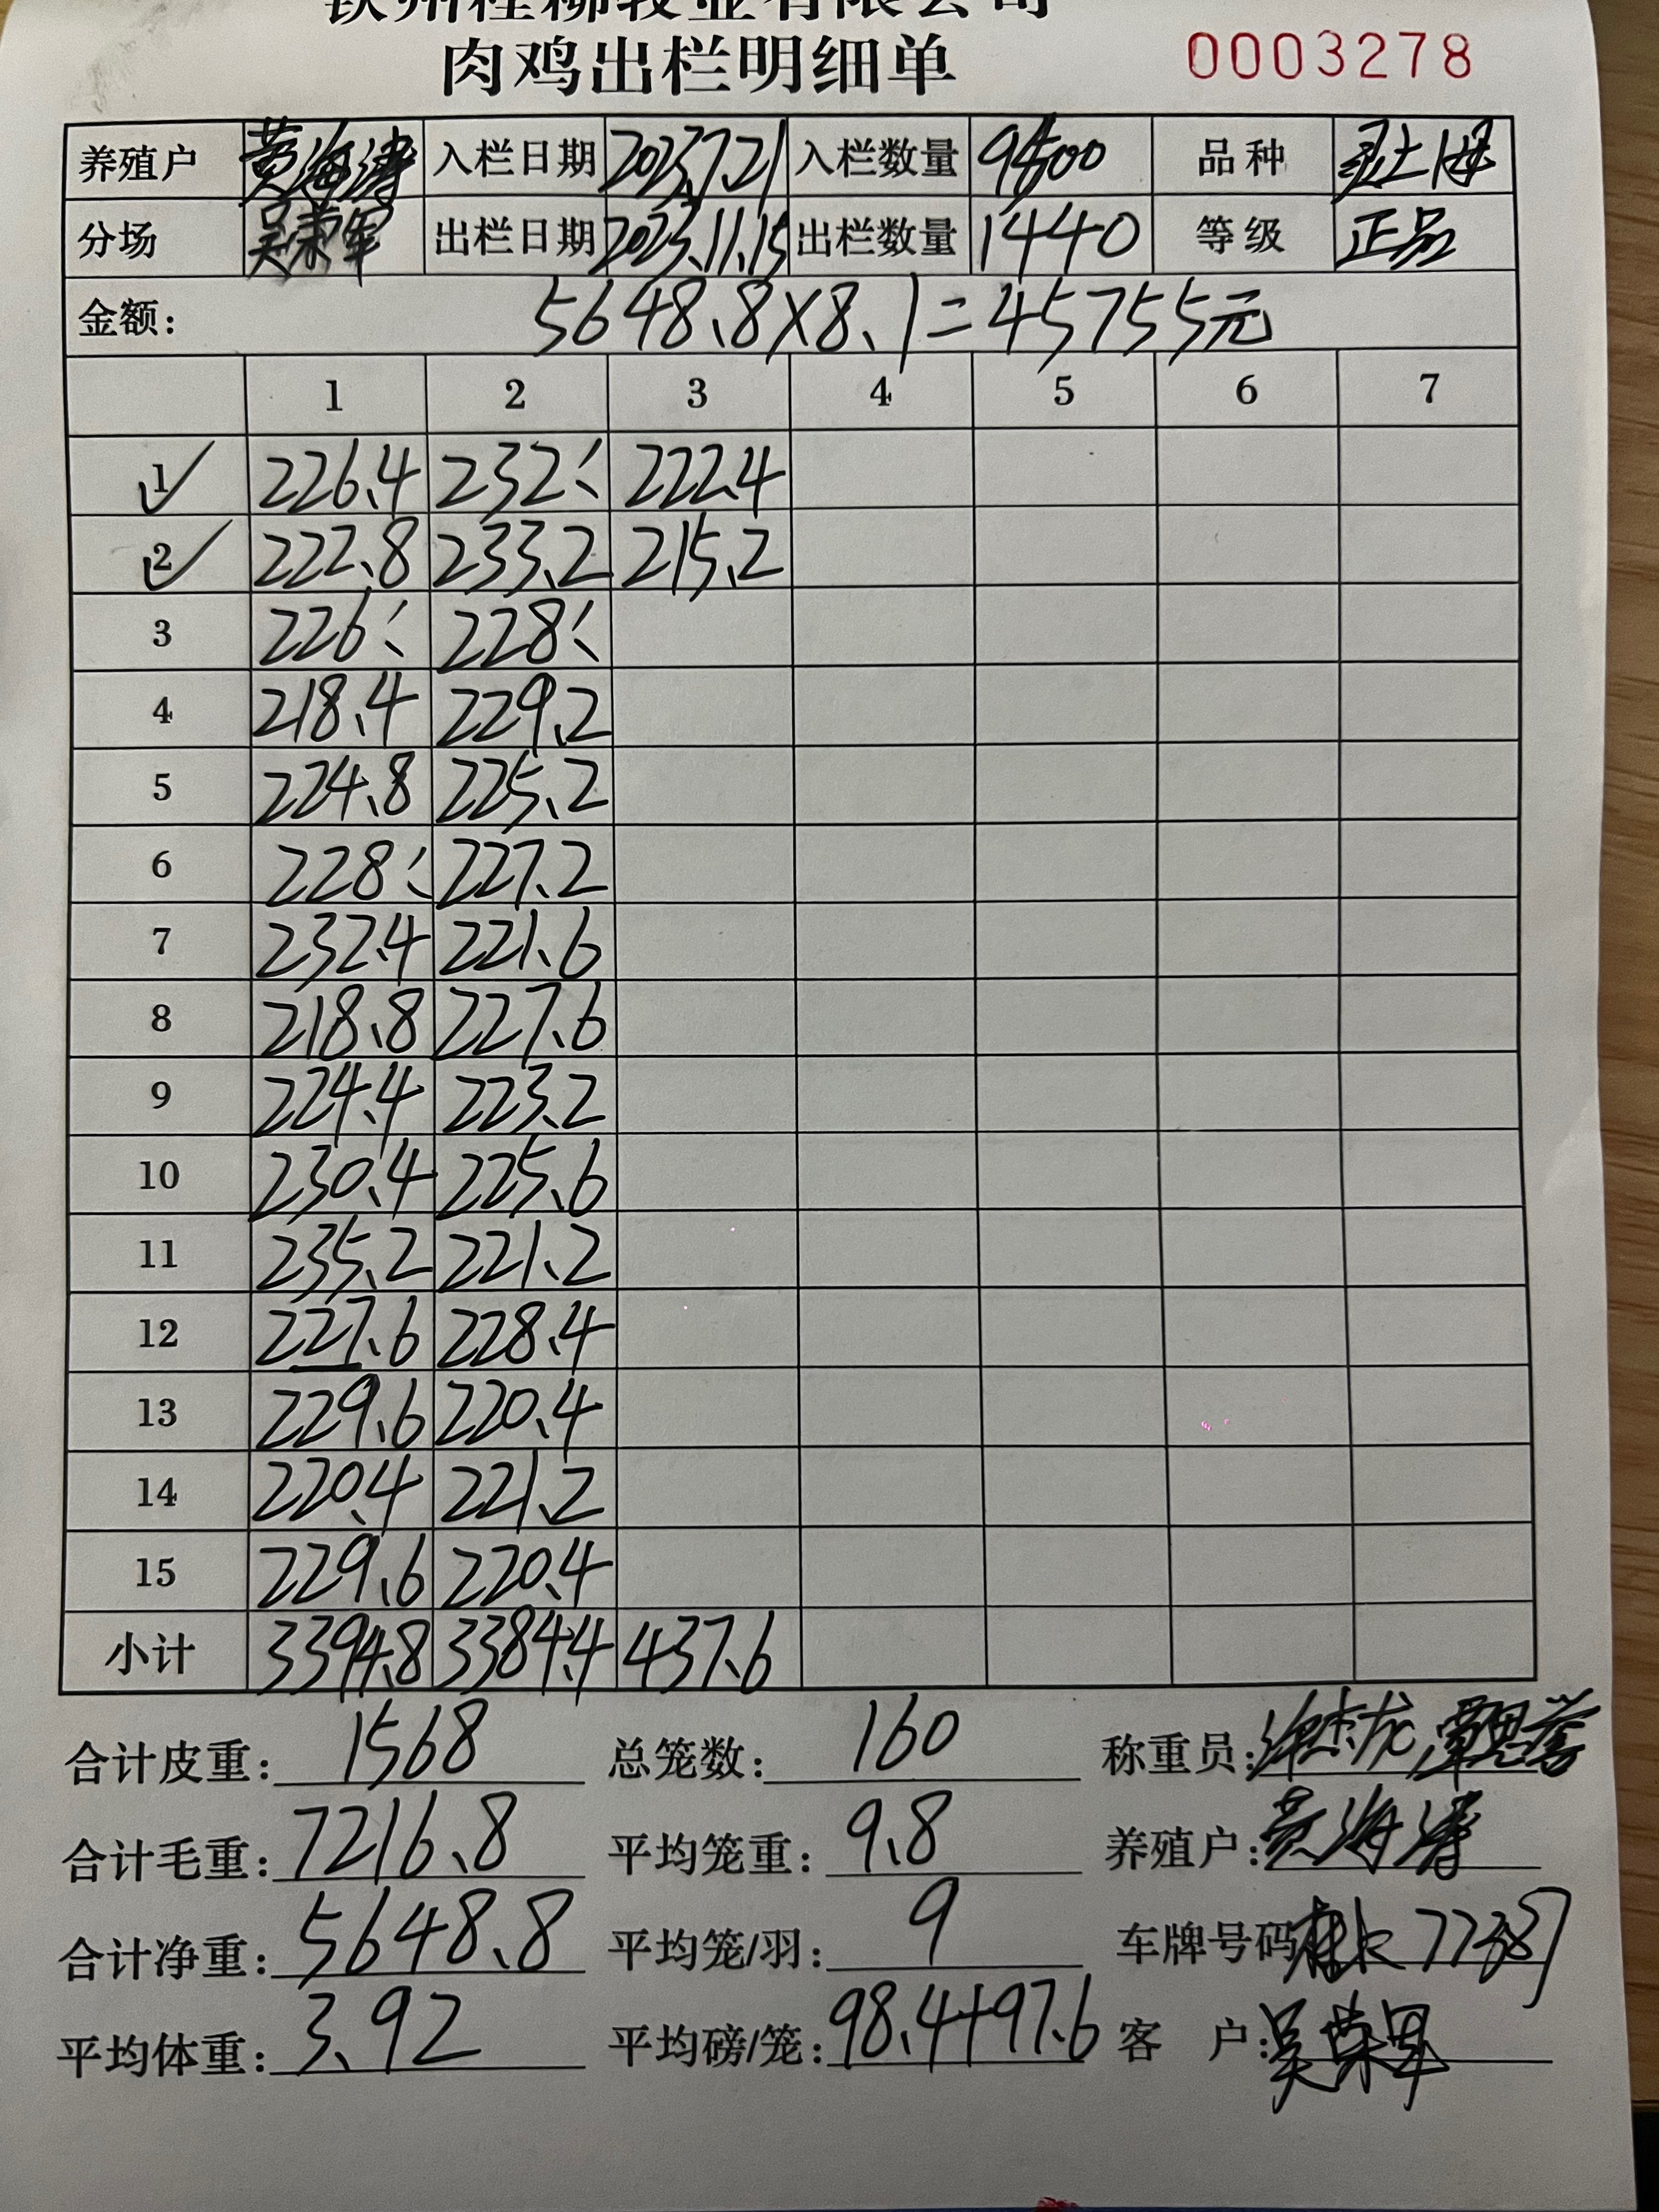 钦州桂柳牧业有限公司
肉鸡出栏明细单 0003278
养殖户 黄海涛 入栏日期 2023.7.21 入栏数量 9500 品种
分场 吴荣军 出栏日期 2023.11.15 出栏数量 1440 等级 正品
金额: 5648.8×8.1=45755元
1 2 3 4 5 6 7
1 ✓ 226.4 232、 222.4
2 ✓ 222.8 233.2 215.2
3 226、 228、
4 218.4 229.2
5 224.8 225.2
6 228、 227.2
7 232.4 221.6
8 218.8 227.6
9 224.4 223.2
10 230.4 225.6
11 235.2 221.2
12 227.6 228.4
13 229.6 220.4
14 220.4 221.2
15 229.6 220.4
小计 3394.8 3384.4 437.6
合计皮重: 1568 总笼数: 160 称重员:
合计毛重: 7216.8 平均笼重: 9.8 养殖户: 黄海涛
合计净重: 5648.8 平均笼/羽: 9 车牌号码
平均体重: 3.92 平均磅/笼: 98.4+97.6 客户: 吴荣军